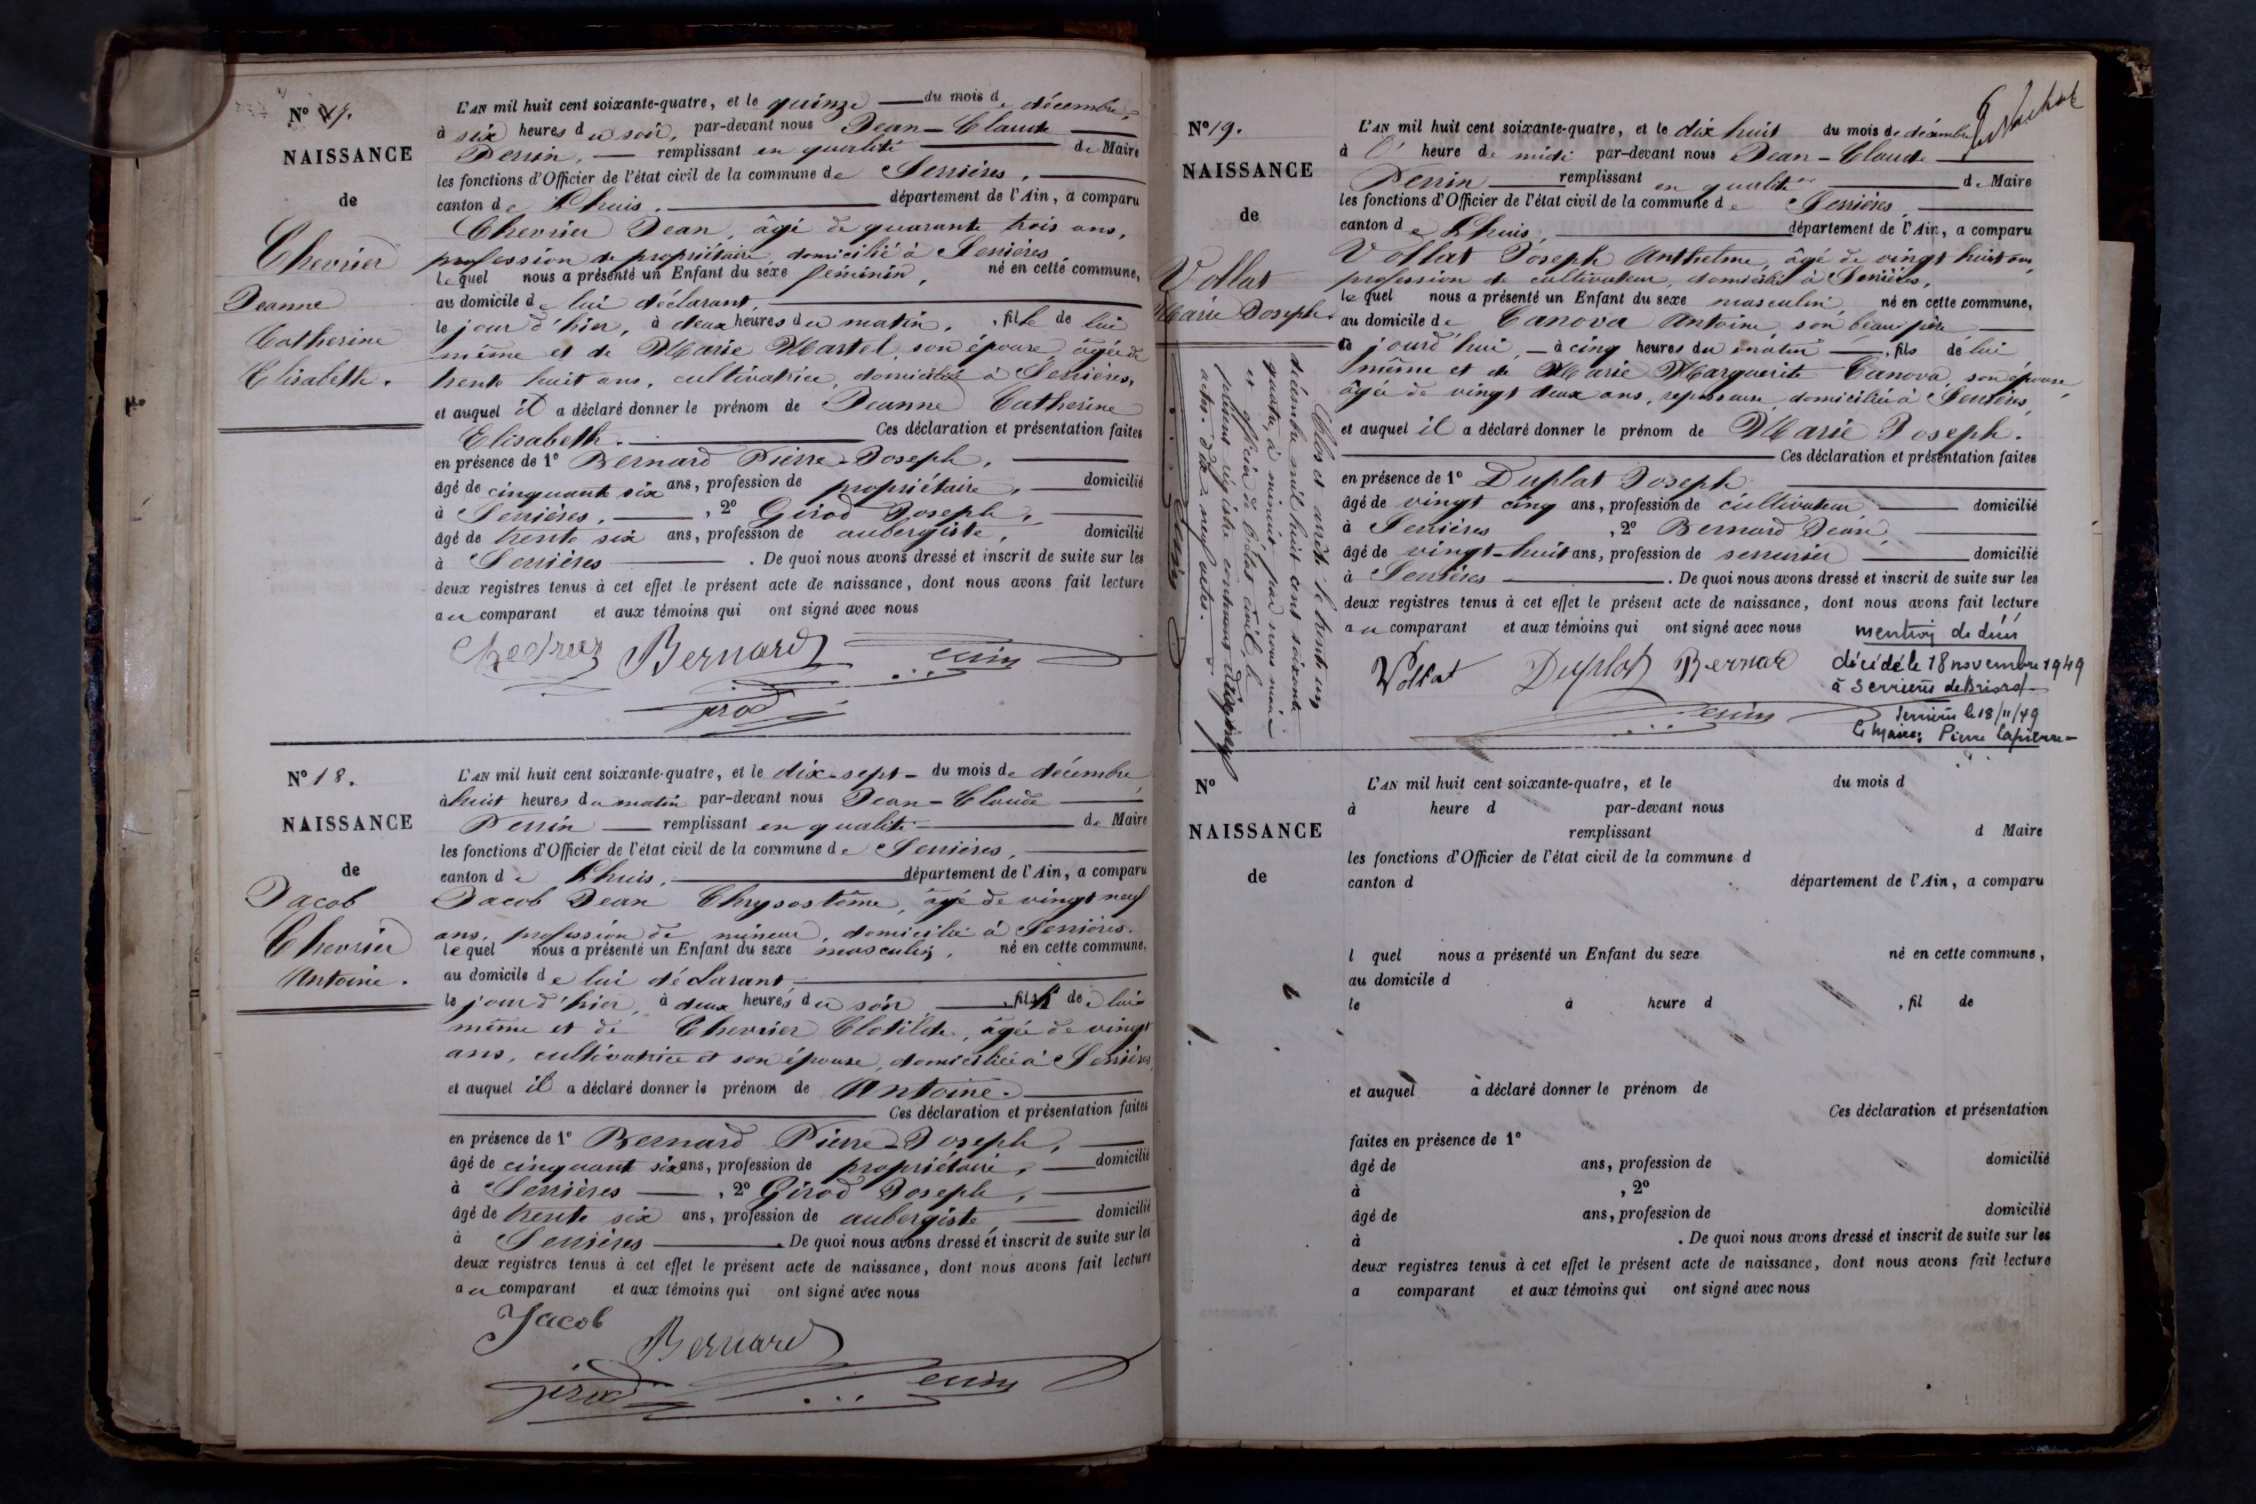 N° 17.
NAISSANCE
de
Chevrier
Jeanne
Catherine
Elisabeth.
L'AN mil huit cent soixante-quatre, et le quinze du mois de décembre,
à six heures du soir, par-devant nous Jean-Claude
Perrin, remplissant en qualité de Maire
les fonctions d'Officier de l'état civil de la commune de Serrières,
canton de Lhuis, département de l'Ain, a comparu
Chevrier Jean, âgé de quarante trois ans,
profession de propriétaire, domicilié à Serrières
lequel nous a présenté un Enfant du sexe féminin, né en cette commune,
au domicile de lui déclarant,
le jour d'hier, à deux heures du matin, fille de lui
même et de Marie Martel, son épouse, âgée de
trente huit ans, cultivatrice, domiciliée à Serrières,
et auquel il a déclaré donner le prénom de Jeanne Catherine
Elisabeth. Ces déclaration et présentation faites
en présence de 1° Bernard Pierre-Joseph,
âgé de cinquante six ans, profession de propriétaire, domicilié
à Serrières, , 2° Girod Joseph,
âgé de trente six ans, profession de aubergiste, domicilié
à Serrières . De quoi nous avons dressé et inscrit de suite sur les
deux registres tenus à cet effet le présent acte de naissance, dont nous avons fait lecture
au comparant et aux témoins qui ont signé avec nous
Bernard Perrin
Girod
N° 18.
NAISSANCE
de
Jacob
Chevrier
Antoine.
L'AN mil huit cent soixante-quatre, et le dix-sept du mois de décembre,
à huit heures du matin par-devant nous Jean-Claude
Perrin remplissant en qualité de Maire
les fonctions d'Officier de l'état civil de la commune de Serrières,
canton de Lhuis, département de l'Ain, a comparu
Jacob Jean Chrysostôme, âgé de vingt neuf
ans, profession de mineur, domicilié à Serrières.
lequel nous a présenté un Enfant du sexe masculin, né en cette commune,
au domicile de lui déclarant,
le jour d'hier, à deux heures du soir , fils de lui
même et de Chevrier Clotilde, âgée de vingt
ans, cultivatrice et son épouse, domiciliée à Serrières,
et auquel il a déclaré donner le prénom de Antoine.
Ces déclaration et présentation faites
en présence de 1° Bernard Pierre-Joseph,
âgé de cinquant six ans, profession de propriétaire, domicilié
à Serrières , 2° Girod Joseph,
âgé de trente six ans, profession de aubergiste, domicilié
à Serrières . De quoi nous avons dressé et inscrit de suite sur les
deux registres tenus à cet effet le présent acte de naissance, dont nous avons fait lecture
au comparant et aux témoins qui ont signé avec nous
Jacob
Bernard
Girod Perrin
N° 19.
NAISSANCE
de
Vollat
Marie Joseph.
L'AN mil huit cent soixante-quatre, et le dix huit du mois de décembre
à l' heure de midi par-devant nous Jean-Claude
Perrin remplissant en qualité de Maire
les fonctions d'Officier de l'état civil de la commune de Serrières,
canton de Lhuis, département de l'Ain, a comparu
Vollat Joseph Anthelme, âgé de vingt huit ans,
profession de cultivateur, domicilié à Serrières,
lequel nous a présenté un Enfant du sexe masculin, né en cette commune,
au domicile de Canova Antoine, son beau père
ce jourd'hui, à cinq heures du matin , fils de lui
même et de Marie Marguerite Canova, son épouse,
âgée de vingt deux ans, repasseuse, domiciliée à Serrières
et auquel il a déclaré donner le prénom de Marie Joseph.
Ces déclaration et présentation faites
en présence de 1° Duplat Joseph
âgé de vingt cinq ans, profession de cultivateur domicilié
à Serrières , 2° Bernard Jean,
âgé de vingt-huit ans, profession de serrurier domicilié
à Serrières . De quoi nous avons dressé et inscrit de suite sur les
deux registres tenus à cet effet le présent acte de naissance, dont nous avons fait lecture
au comparant et aux témoins qui ont signé avec nous
Vollat Duplat Bernard
Perrin
mention de décès
décédé le 18 novembre 1949
à Serrières de Briord
Serrières le 18/11/49
Le Maire: Pierre Lapierre
Clos et arrêté le trente un
décembre mil huit cent soixante
quatre, à minuit par nous maire
et officier de l'état civil, le
présent registre contenant dix neuf
actes. dix-neuf actes.
Perrin
N°
NAISSANCE
de
L'AN mil huit cent soixante-quatre, et le du mois d
à heure d par-devant nous
remplissant d Maire
les fonctions d'Officier de l'état civil de la commune d
canton d département de l'Ain, a comparu
l quel nous a présenté un Enfant du sexe né en cette commune,
au domicile d
le à heure d , fil de
et auquel a déclaré donner le prénom de
Ces déclaration et présentation
faites en présence de 1°
âgé de ans, profession de domicilié
à , 2°
âgé de ans, profession de domicilié
à . De quoi nous avons dressé et inscrit de suite sur les
deux registres tenus à cet effet le présent acte de naissance, dont nous avons fait lecture
a comparant et aux témoins qui ont signé avec nous